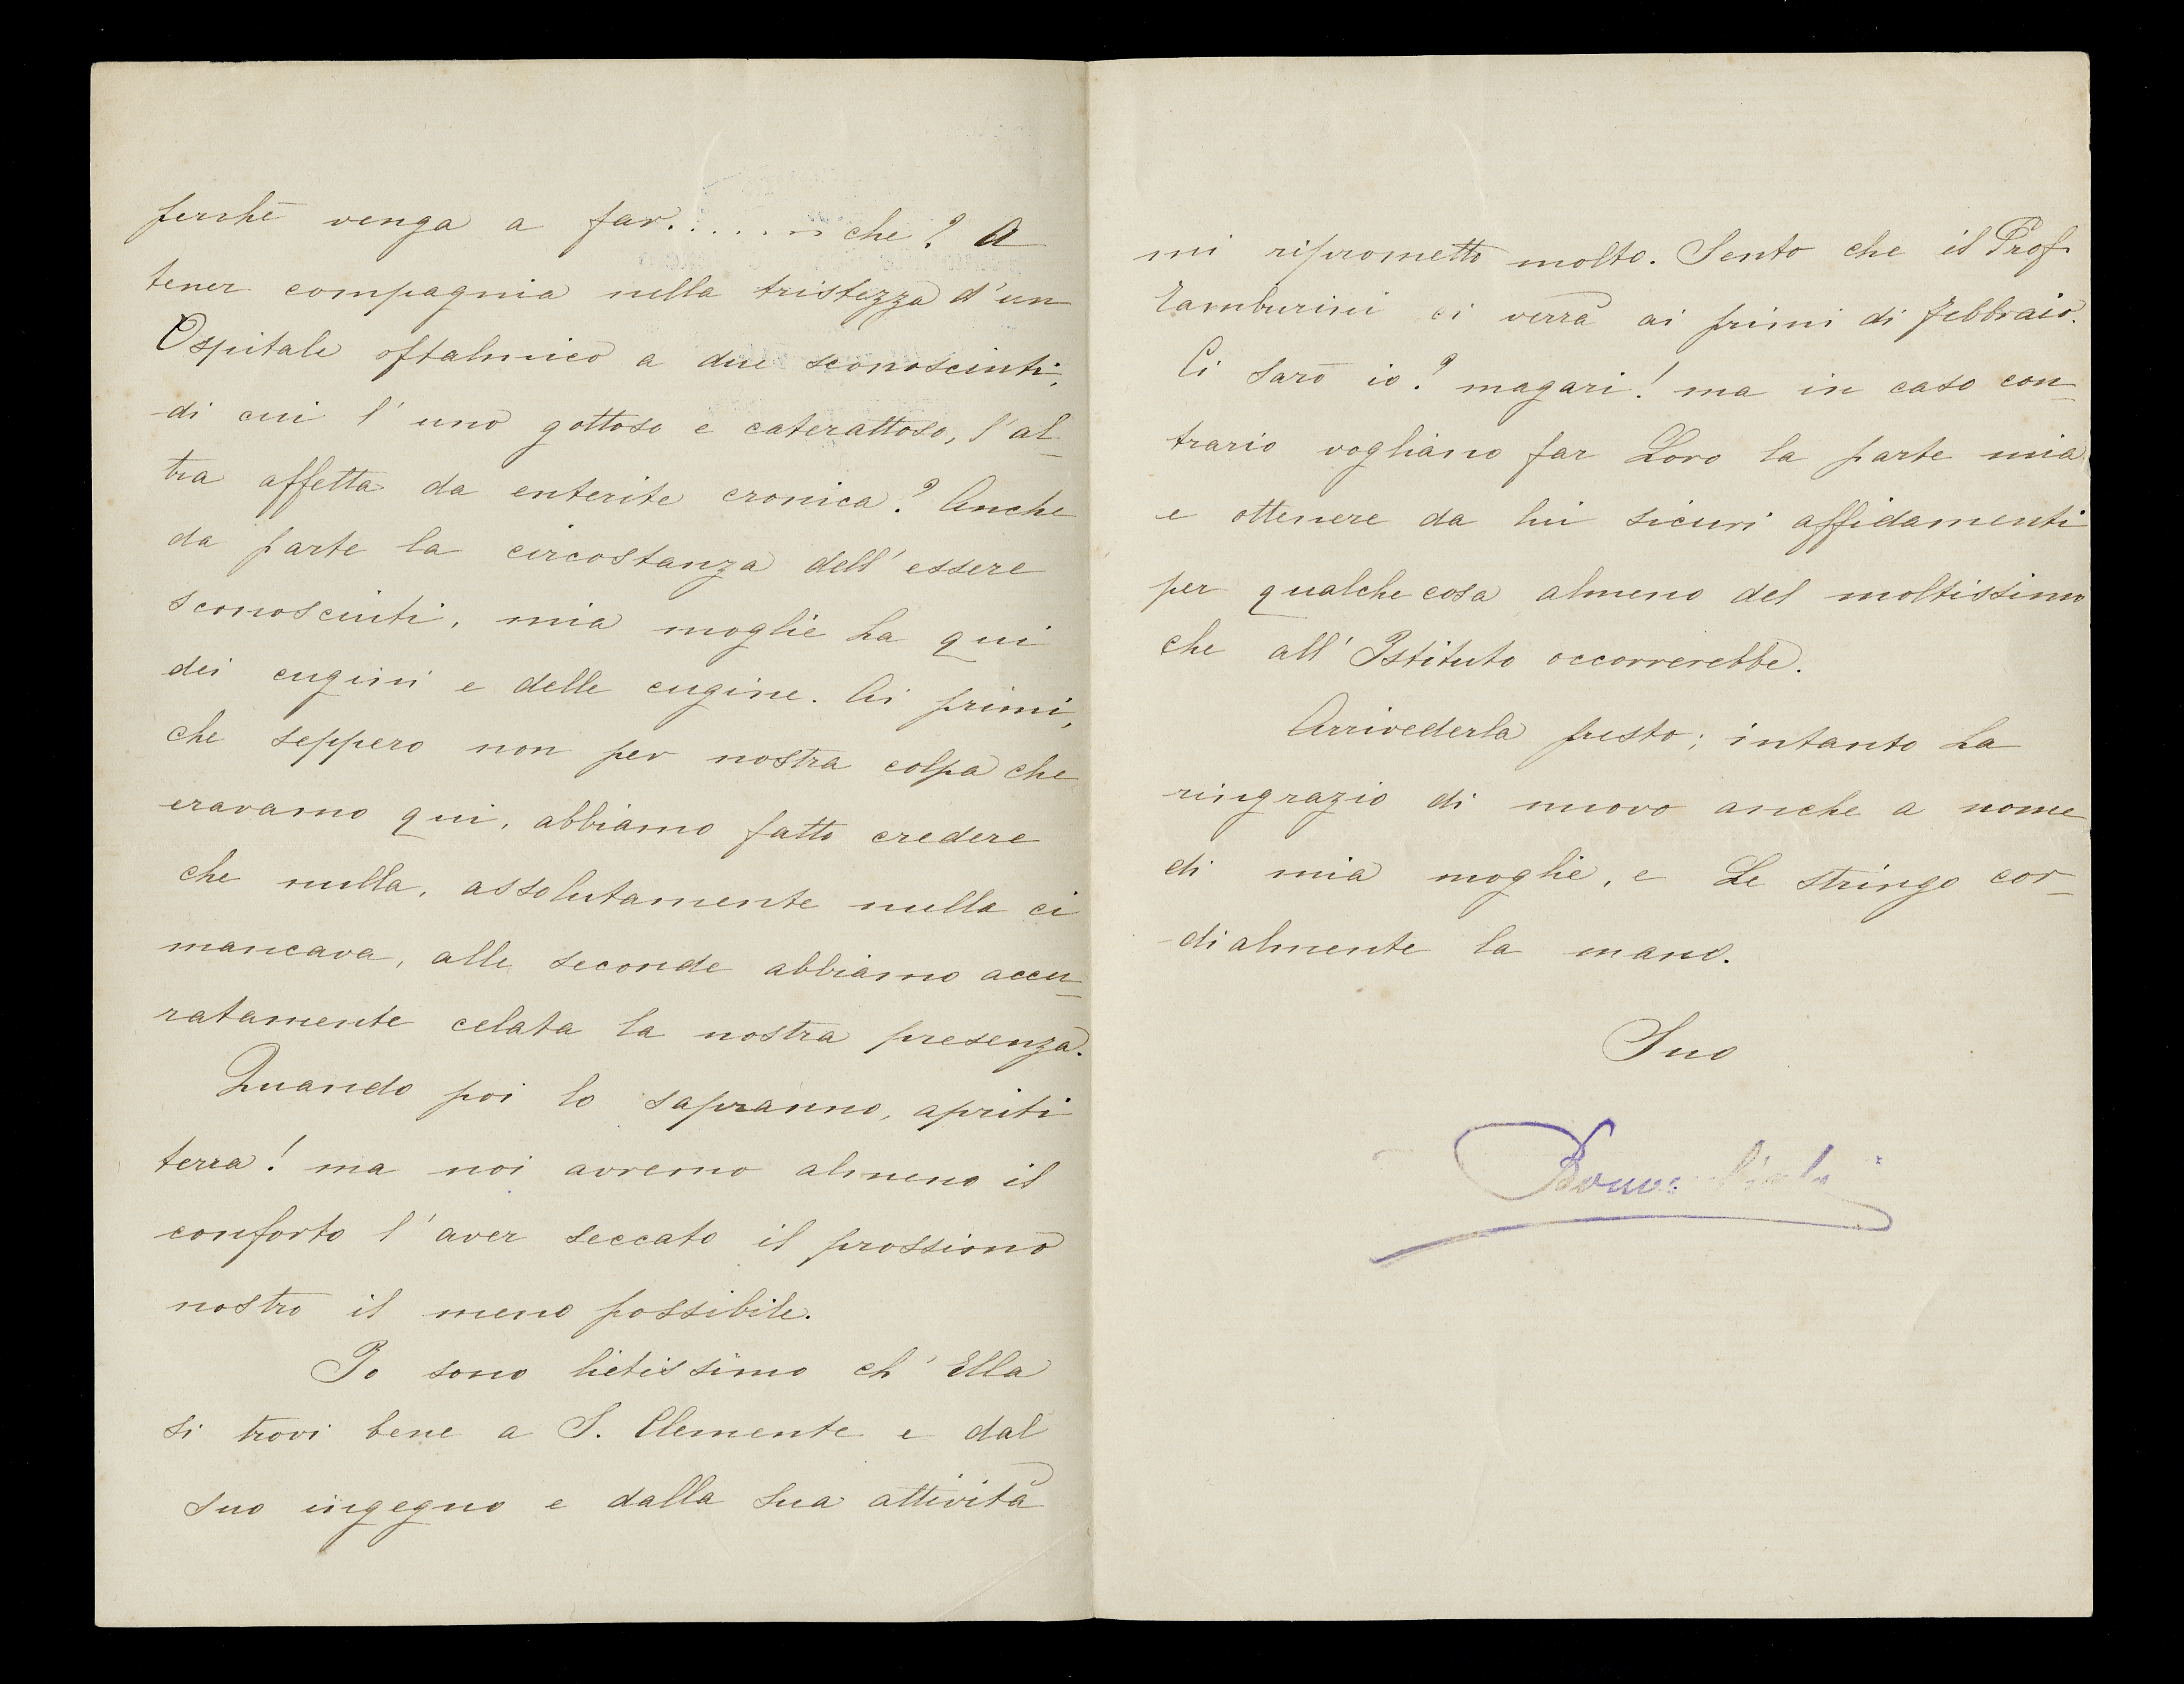 perchè venga a far....... che? A
tener compagnia nella tristezza d'un
Ospitale oftalmico a due sconosciuti,
di cui l'uno gottoso e caterattoso, l'al_
tra affetta da enterite cronica? Anche
da parte la circostanza dell'essere
sconosciuti, mia moglie ha qui
dei cugini e delle cugine. Ai primi,
che seppero non per nostra colpa che
eravamo qui, abbiamo fatto credere
che nulla, assolutamente nulla ci
mancava, alle seconde abbiamo accu_
ratamente celata la nostra presenza.
Quando poi lo sapranno, apriti
terra! ma noi avremo almeno il
conforto l'aver seccato il prossimo
nostro il meno possibile.
Io sono lietissimo ch'Ella
si trovi bene a S. Clemente e dal
suo ingegno e dalla sua attività
mi riprometto molto. Sento che il Prof
Tamburini ci verrà ai primi di febbraio.
Ci sarò io? magari! ma in caso con_
trario vogliano far Loro la parte mia
e ottenere da lui sicuri affidamenti
per qualche cosa almeno del moltissimo
che all'Istituto occorrerebbe.
Arrivederla presto; intanto La
ringrazio di nuovo anche a nome
di mia moglie, e Le stringo cor_
dialmente la mano.
Suo